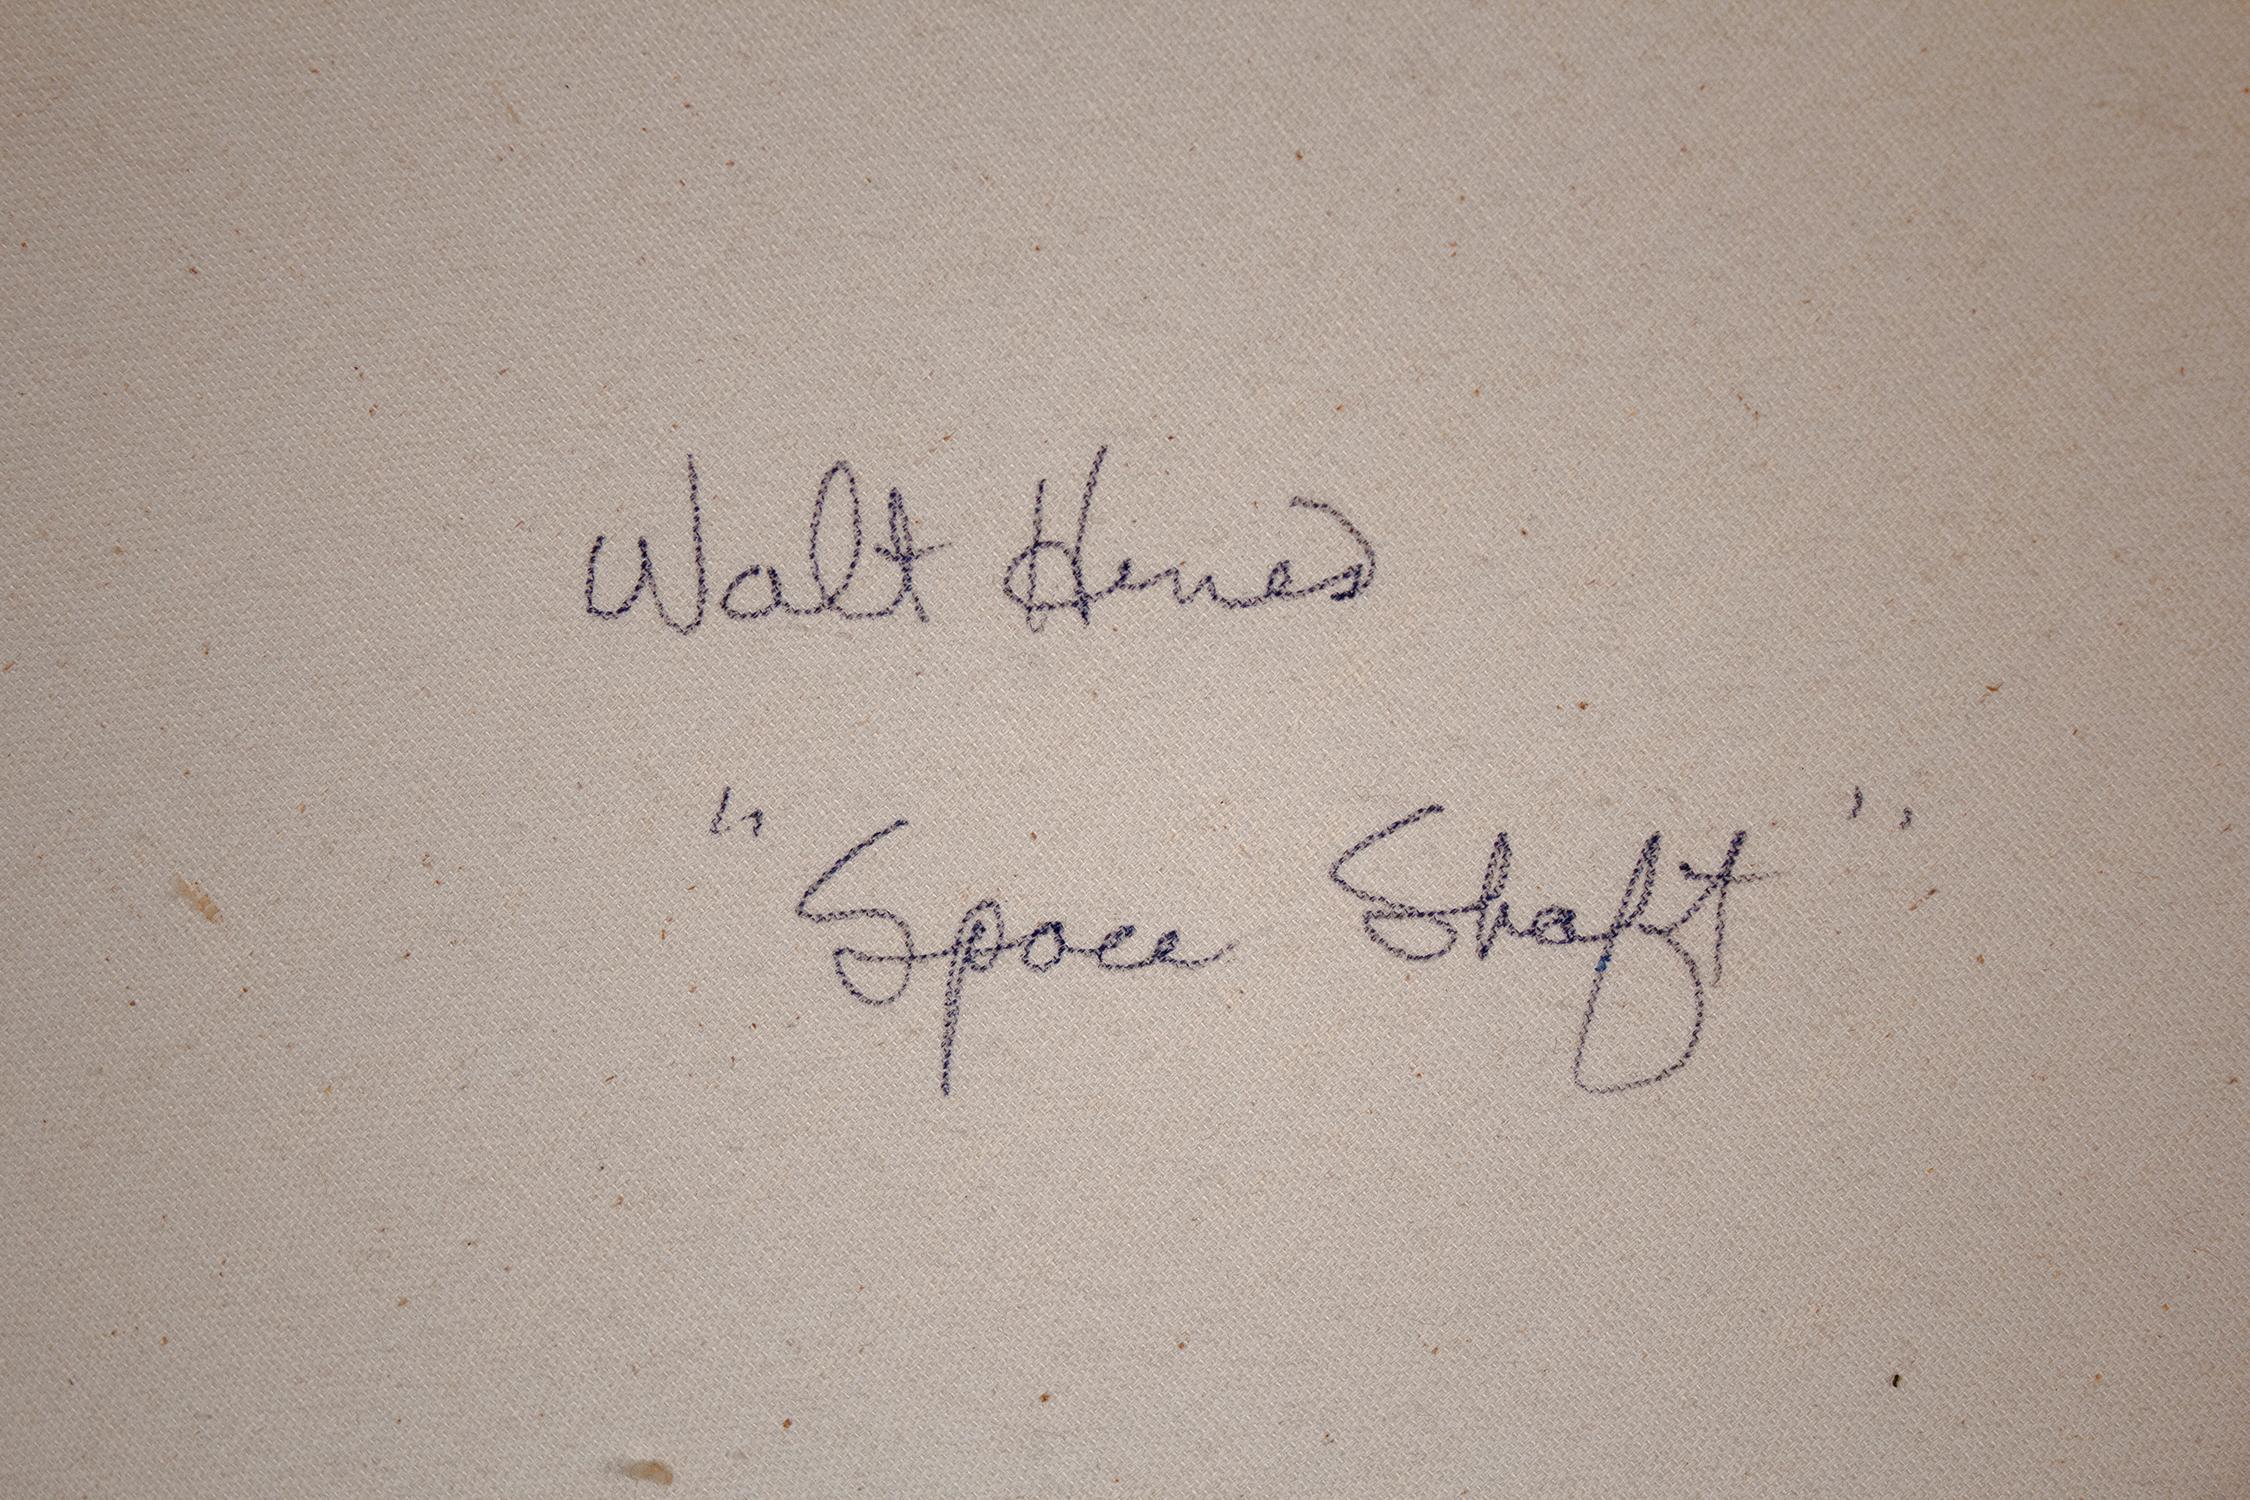 Walt Hines
"Space Shaft"